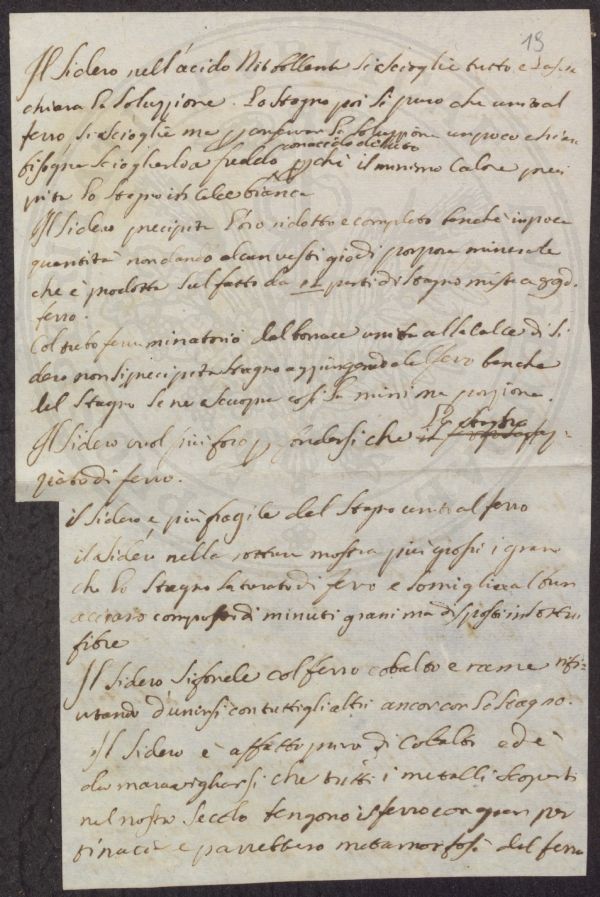 19
Il Sidero nell'acido Nit bollente si scioglie tutto e lascia
chiara la Soluzzione. Lo Stagno poi si puro che unito al
ferro si scioglie ma p conservar la Soluzzione un poco chiara
bisogna scioglierlo a freddo con acido diluto p chè il minimo Calore preci
pita lo Stagno in Calce bianca
Il Sidero precipita l'oro ridotto e completo benchè in poca
quantità non dando alcun vestigio di porpora minerale
che è prodotta sul fatto da parti di Stagno miste a gd.
ferro.
Col ferruminatorio dal borrace unita alla Calce di Si
dero non si precipita Stagno aggiungendole ferro benche
del Stagno se ne scuopra così la minima porzione.
Il Sidero vuol più foco p fondersi che
di ferro.
il Sidero è più fragile del Stagno unito al ferro
il Sidero nella rottura mostra più grossi i grani
che lo Stagno saturato di ferro e somiglia al
acciaro composto di minuti grani ma disposti in
fibre
Il Sidero si fonde col ferro cobalto e rame rifi-
utando d'unirsi con tutti gli altri ancor con lo Stagno.
Il Sidero è affatto puro di Cobalto ed è
da maravigliarsi che tutti i metalli scoperti
nel nostro Secolo tengono il ferro con gran per
tinacia e parrebbero metamorfosi del ferro